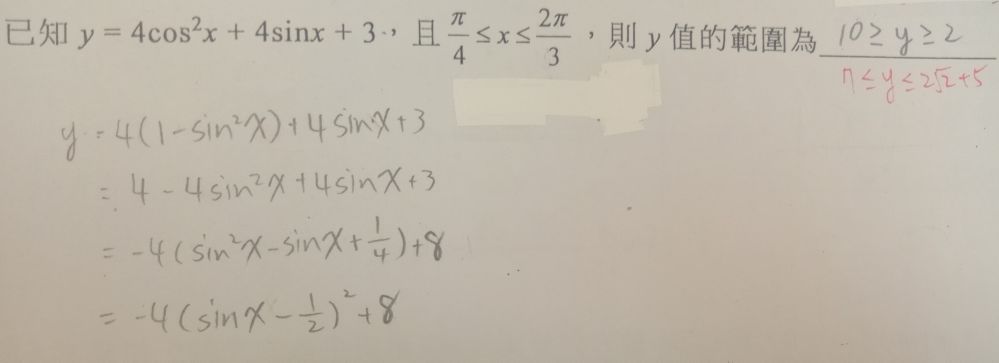 已知 y = 4cos²x + 4sinx + 3，且 π/4 ≤ x ≤ 2π/3，則 y 值的範圍為 10 ≥ y ≥ 2
7 ≤ y ≤ 2√2+5
y = 4(1-sin²x)+4sinx+3
= 4-4sin²x+4sinx+3
= -4(sin²x-sinx+1/4)+8
= -4(sinx-1/2)²+8